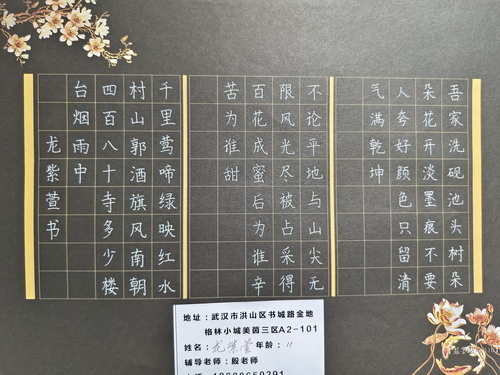 吾家洗砚池头树朵
朵花开淡墨痕不要
人夸好颜色只留清
气满乾坤
不论平地与山尖无
限风光尽被占采得
百花成蜜后为谁辛
苦为谁甜
千里莺啼绿映红水
村山郭酒旗风南朝
四百八十寺多少楼
台烟雨中
龙紫萱书
地址：武汉市洪山区书城路金地
格林小城美茵三区A2-101
姓名：龙紫萱 年龄：11
辅导老师：殷老师